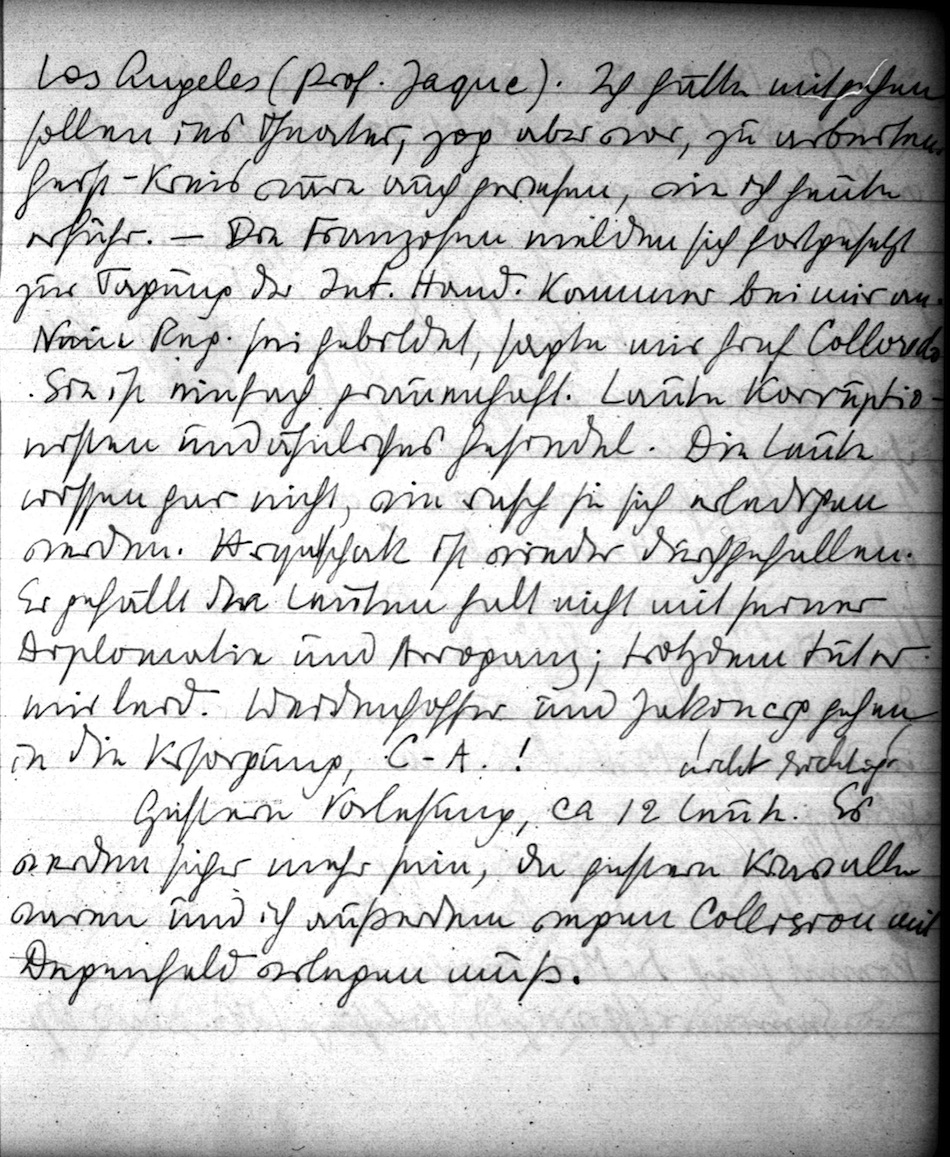 Los Angeles (Prof. Jaque). Ich hätte mitgehen
sollen ins Theater, zog aber vor, zu arbeiten.
Geist-Kreis wäre auch gewesen, wie ich heute
erfuhr. — Die Franzosen melden sich fortgesetzt
zur Tagung der Int. Hand. Kammer bei mir an.
Neue Reg. sei gebildet, sagte mir Graf Colloredo
. Sie ist einfach grauenhaft. Lauter Korruptio-
nisten und ähnliches Gesindel. Die Leute
wissen gar nicht, wie rasch sie sich erledigen
werden. ist wieder durchgefallen.
Er gefällt den Leuten halt nicht mit seiner
Diplomatie und Arroganz; trotzdem tut er
mir leid. Weidenhoffer und Jakoncig gehen
in die Versorgung, C-A.! nicht richtig
Gestern Vorlesung, ca 12 Leute. Es
werden sicher mehr sein, da gestern Krawalle
waren und ich außerdem wegen Collision mit
Degenfeld verlegen muß.